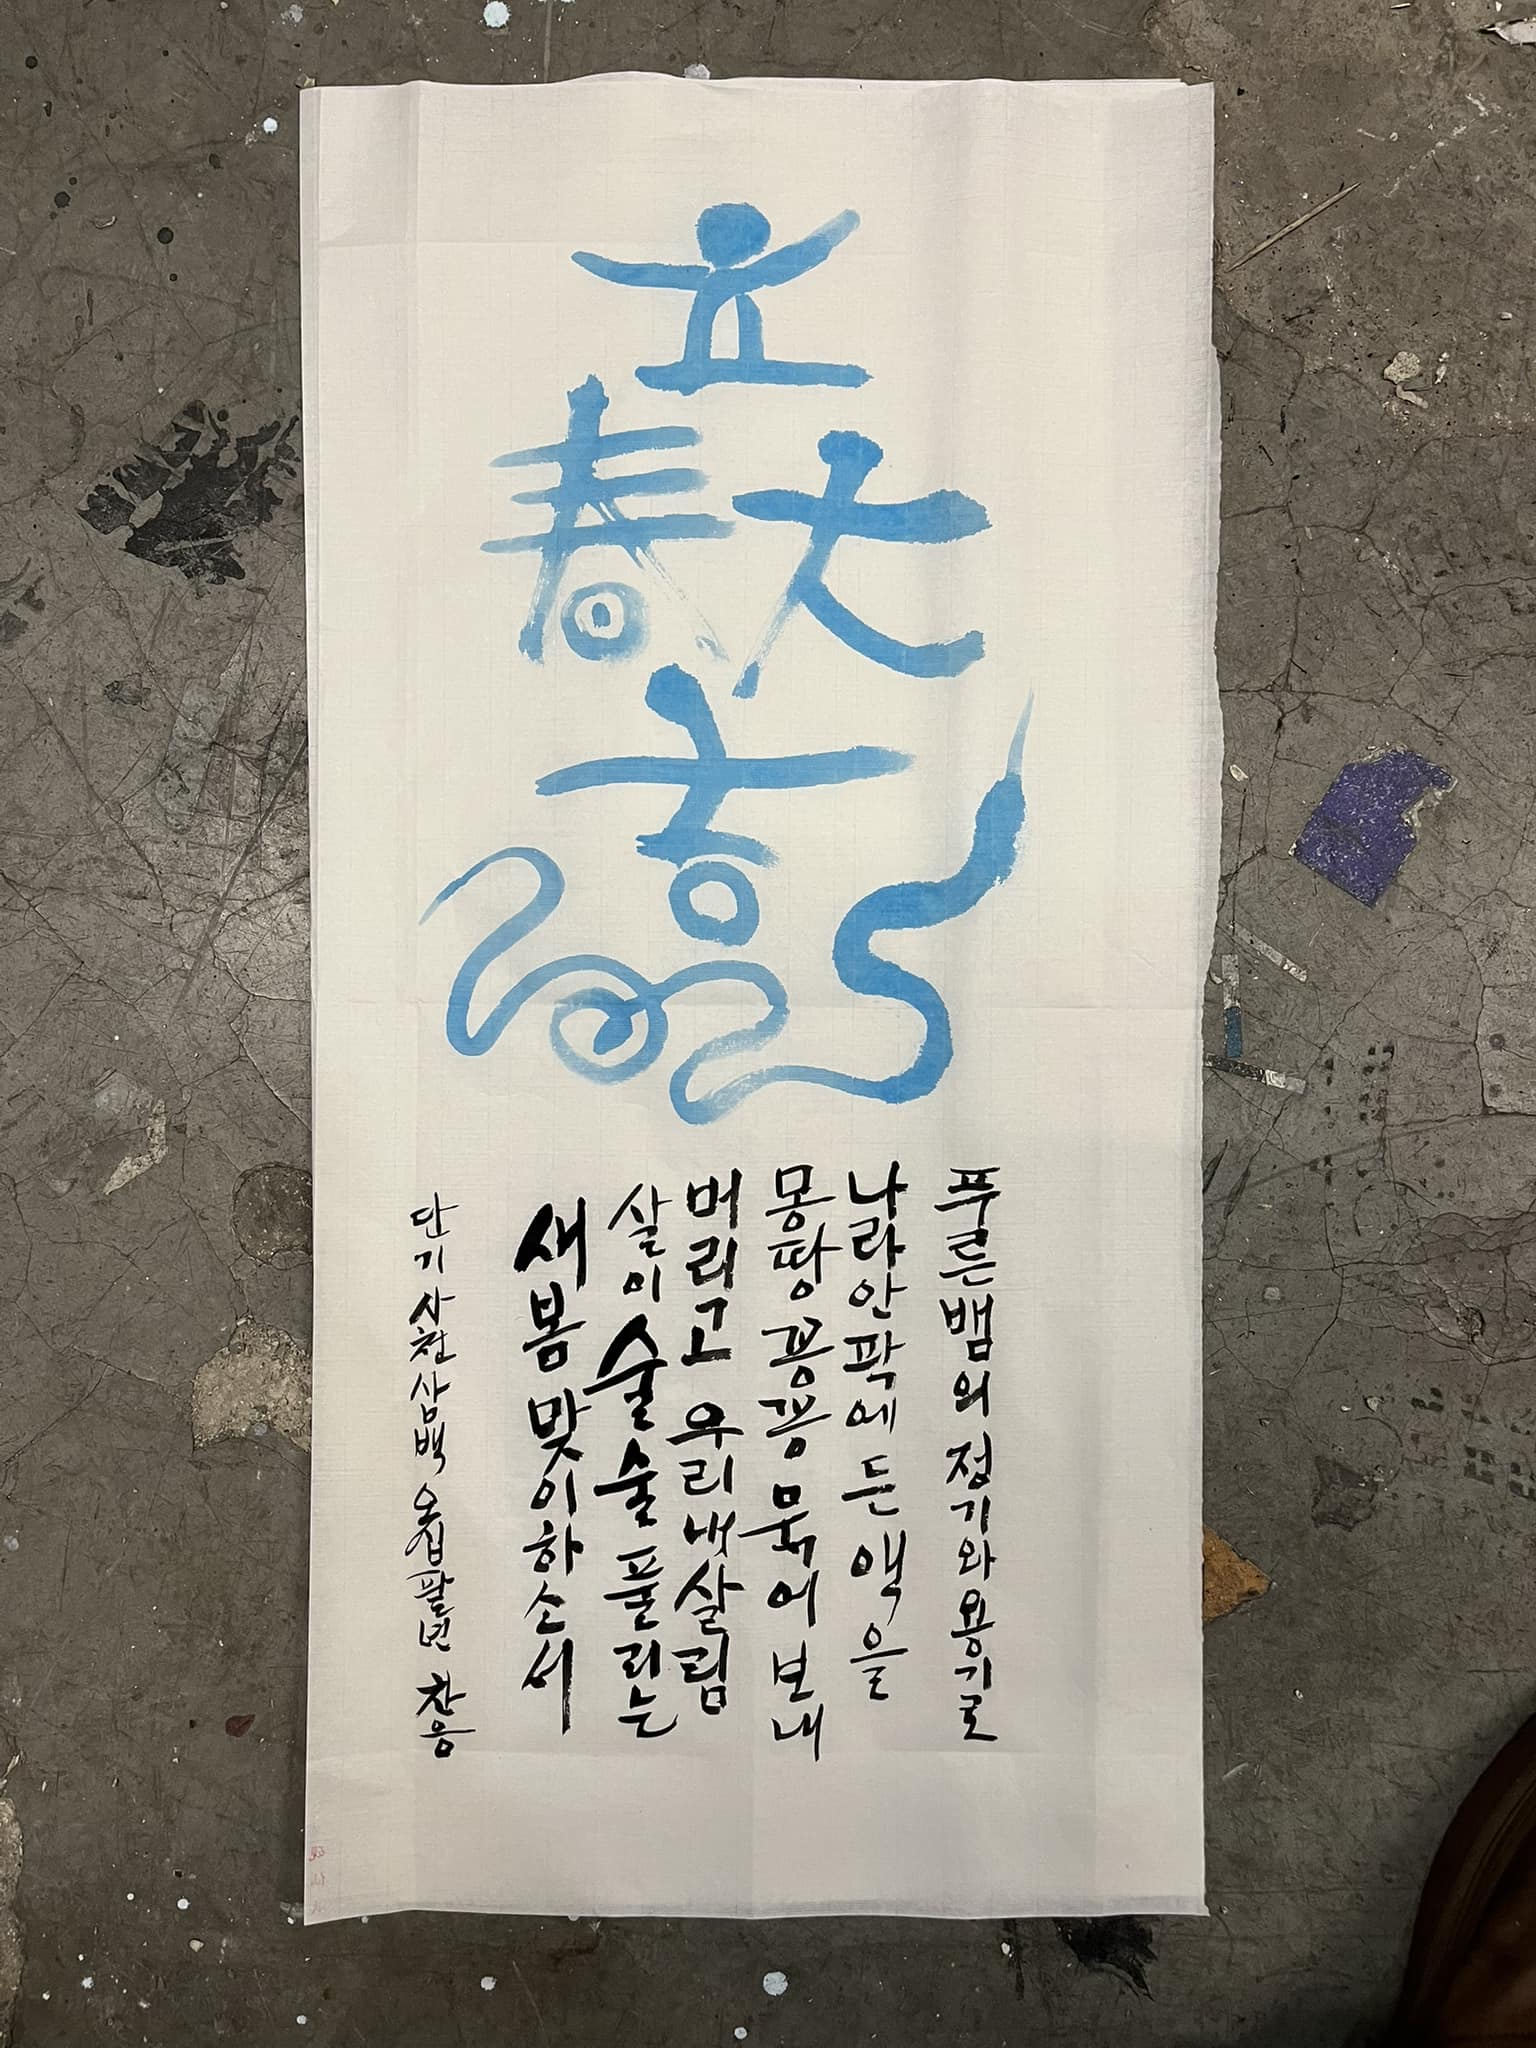 立
春大
吉
푸른뱀의 정기와 용기로
나라안팎에 든 액을
몽땅 꽁꽁 묶어 보내
버리고 우리내살림
살이 술술 풀리는
새봄 맞이하소서
단기 사천삼백 오십팔년 찬응